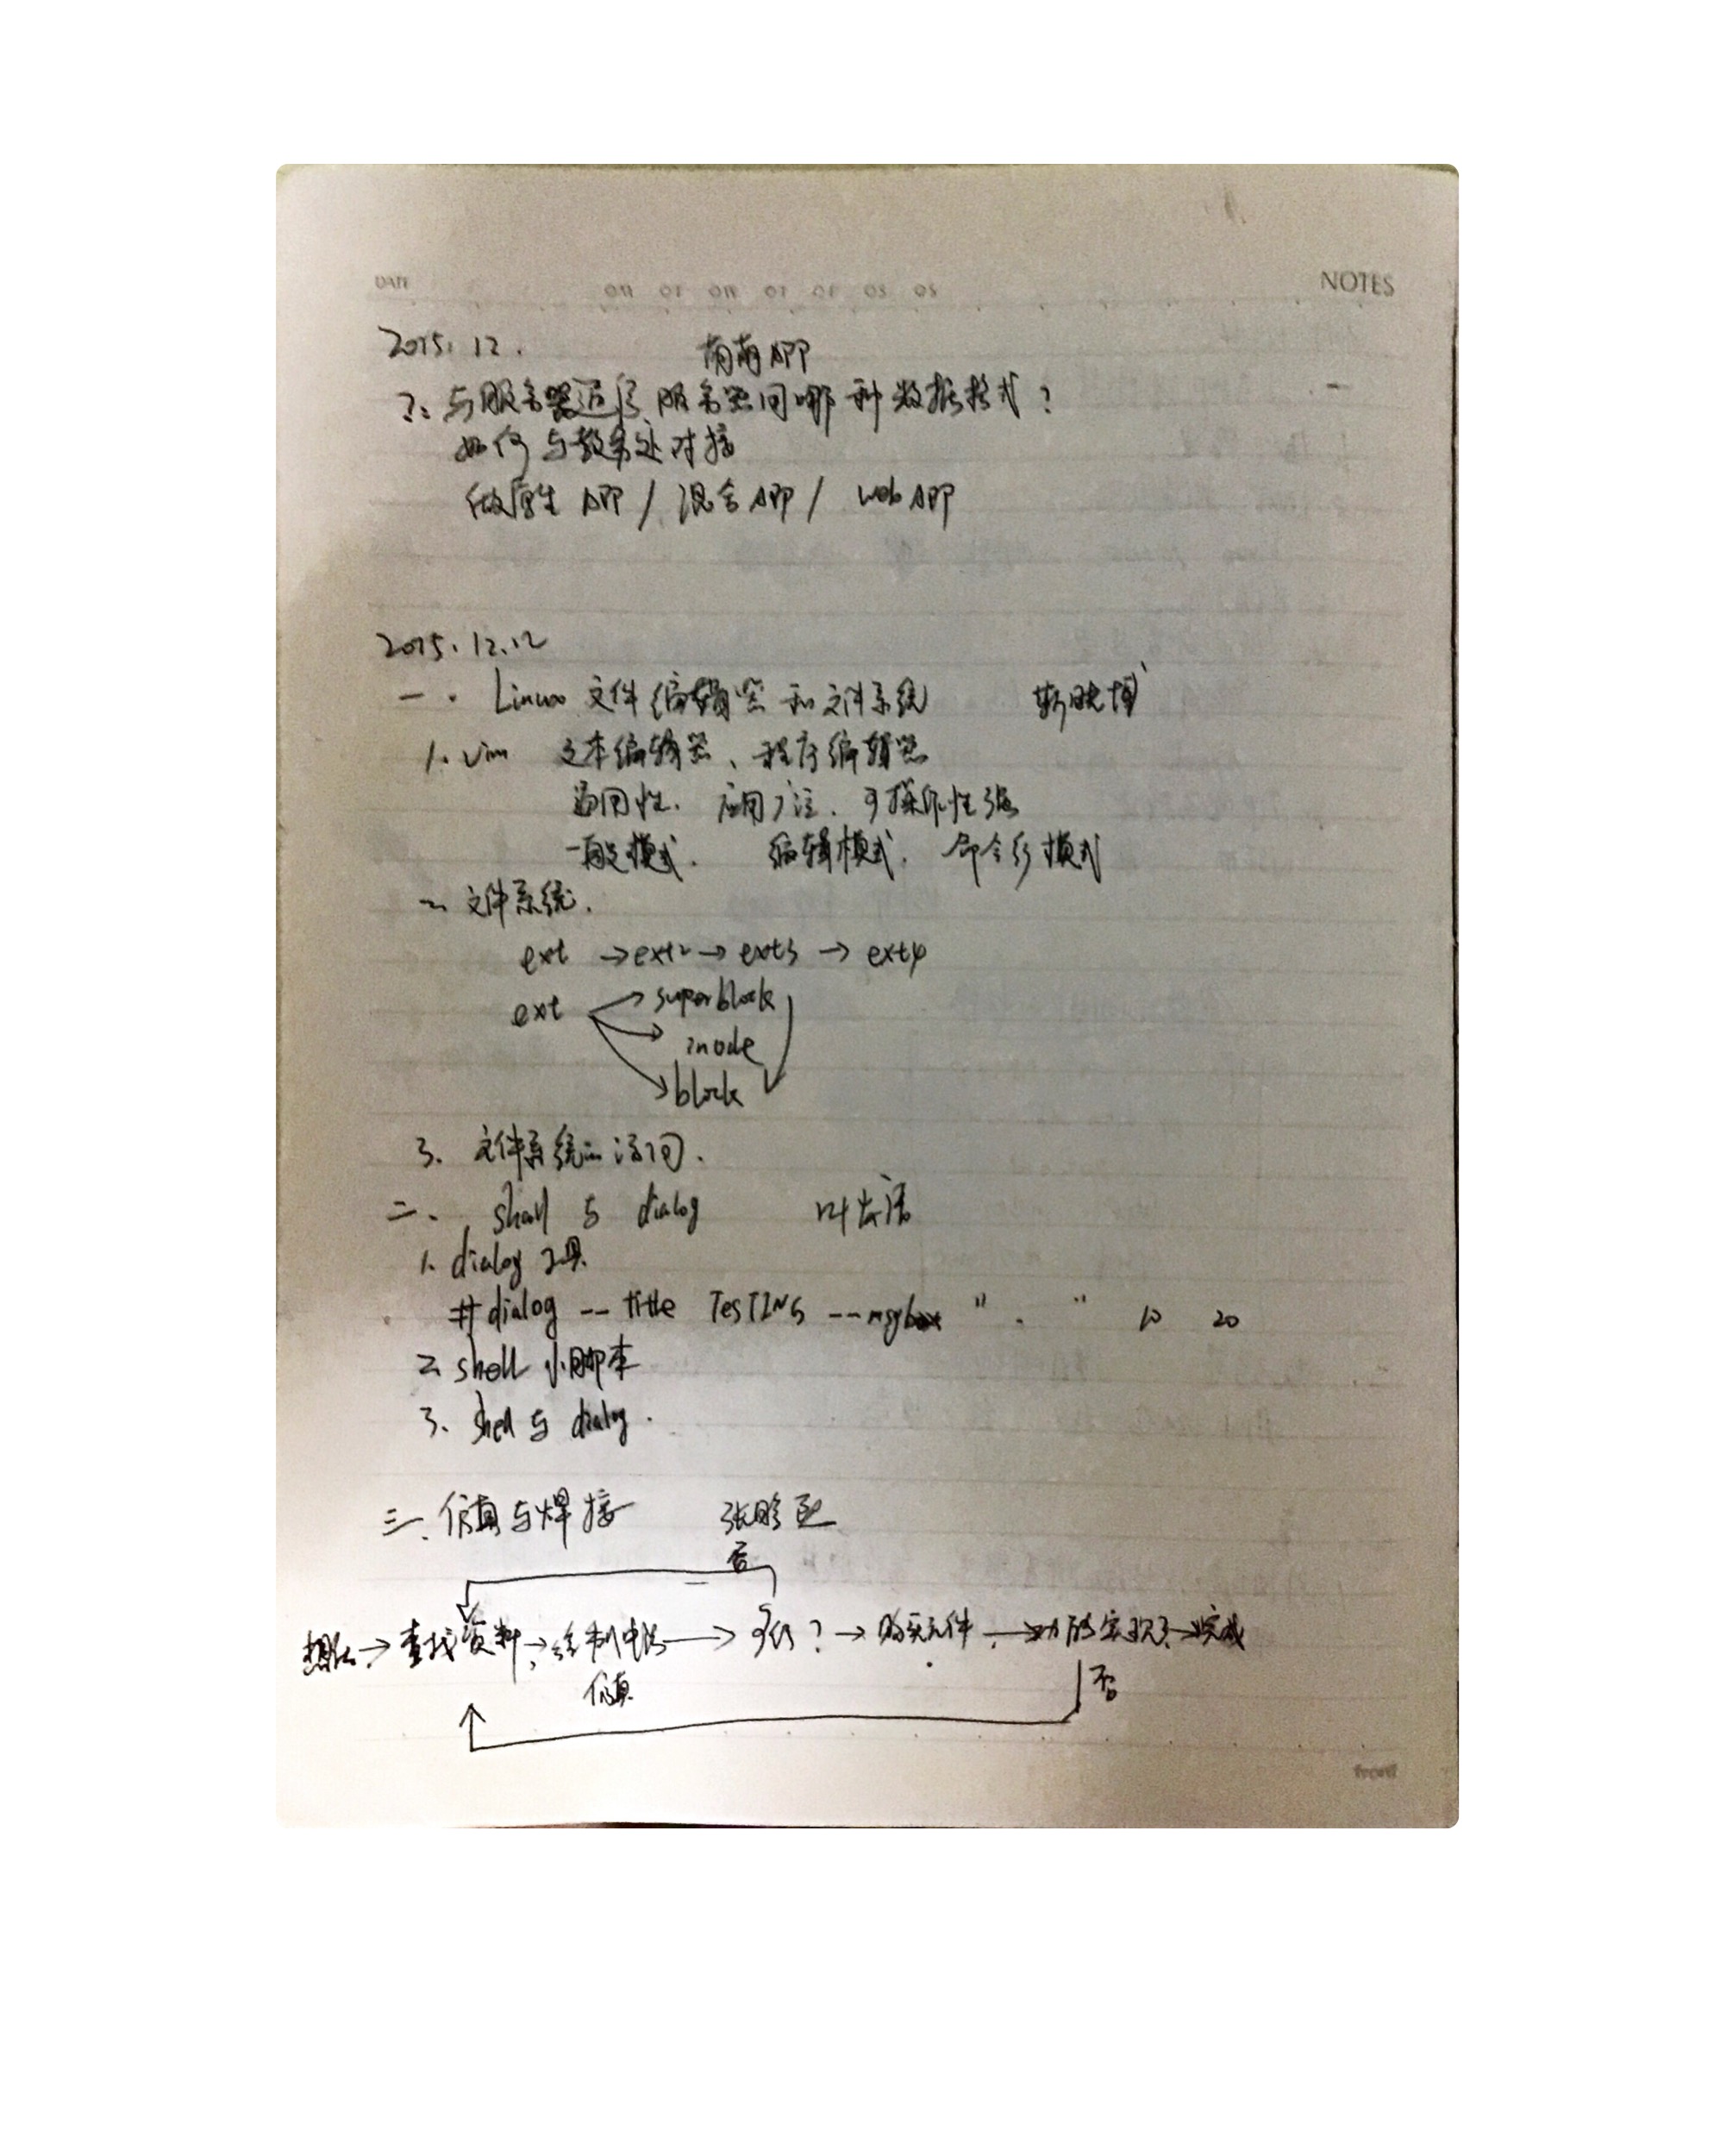 DATE
NOTES
2015.12.
APP
?: 与服务器通信 服务器间哪种数据格式?
如何与教务处对接
做原生 APP / 混合 APP / web APP
2015.12.12
一. Linux 文件编辑器和文件系统
1. vim 文本编辑器、程序编辑器
通用性. 应用广泛. 可操作性强
一般模式. 编辑模式. 命令行模式
2. 文件系统.
ext →ext2→ ext3 → ext4
ext → superblock
→ inode
→ block
3. 文件系统的访问.
二、 shell 与 dialog 叶
1. dialog 工具
# dialog -- title TesTING --msgbox " . " 10 20
2. shell 小脚本
3. shell 与 dialog.
三、仿真与焊接 张
否
想法→查找资料→绘制电路→可行?→购买元件→功能实现?→完成
仿真
否